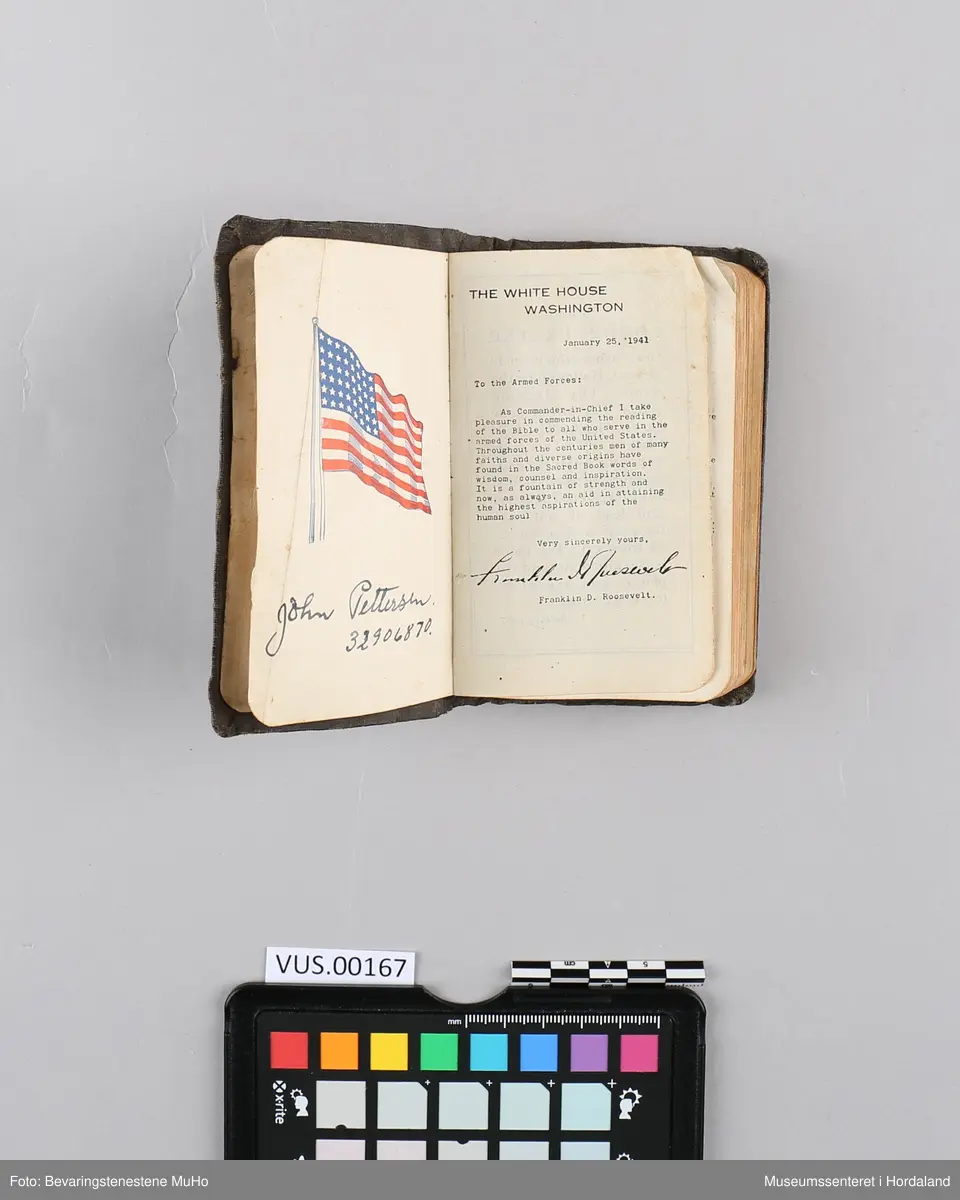 John Pettersen.
32906870.
THE WHITE HOUSE
WASHINGTON
January 25, 1941
To the Armed Forces:
As Commander-in-Chief I take
pleasure in commending the reading
of the Bible to all who serve in the
armed forces of the United States.
Throughout the centuries men of many
faiths and diverse origins have
found in the Sacred Book words of
wisdom, counsel and inspiration.
It is a fountain of strength and
now, as always, an aid in attaining
the highest aspirations of the
human soul
Very sincerely yours,
Franklin D Roosevelt
Franklin D. Roosevelt.
VUS.00167
cm 5
mm
x-rite
Foto: Bevaringstenestene MuHo
Museumssenteret i Hordaland